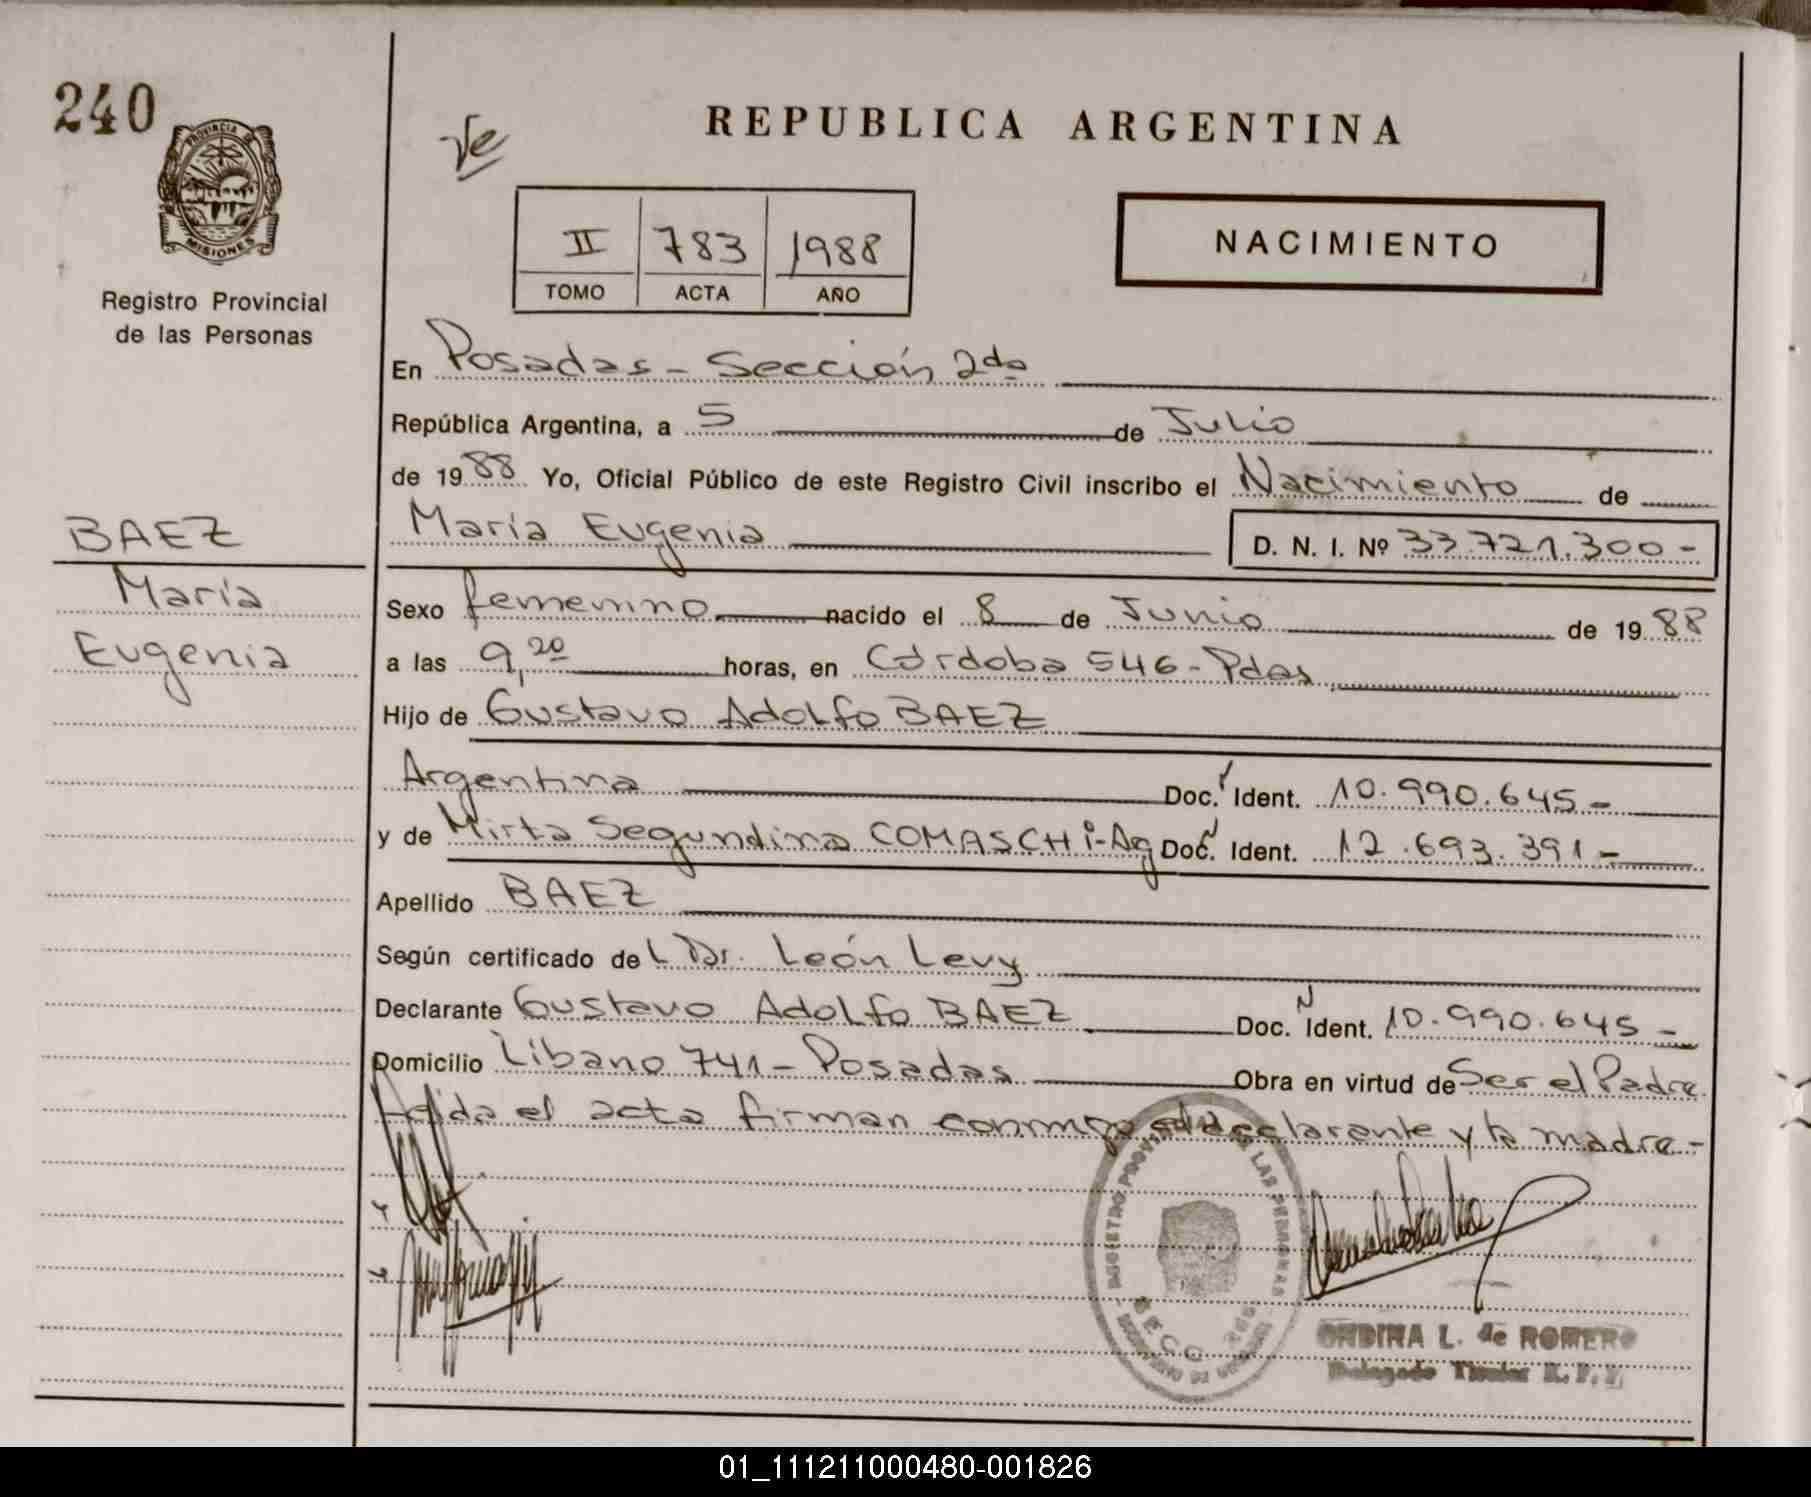 240
Ve
REPUBLICA ARGENTINA
PROVINCIA DE
MISIONES
II 783 1988
TOMO ACTA AÑO
NACIMIENTO
Registro Provincial
de las Personas
En Posadas - Sección 2da
República Argentina, a 5 de Julio
de 1988 Yo, Oficial Público de este Registro Civil inscribo el Nacimiento de
BAEZ
María
Eugenia
María Eugenia D. N. I. Nº 33.721.300-
Sexo femenino nacido el 8 de Junio de 1988
a las 9,20 horas, en Córdoba 546 - Pdas
Hijo de Gustavo Adolfo BAEZ
Argentina Doc. Ident. 10.990.645-
y de Mirta Segundina COMASCHi-Ag Doc. Ident. 12.693.391-
Apellido BAEZ
Según certificado del Dr. León Levy
Declarante Gustavo Adolfo BAEZ Doc. Ident. 10.990.645-
Domicilio Líbano 741 - Posadas Obra en virtud de Ser el Padre
Leída el acta firman conmigo el declarante y la madre-
LAS PERSONAS
SECC
ONDINA L. de ROMERO
Delegado Titular R. P. P.
01_111211000480-001826